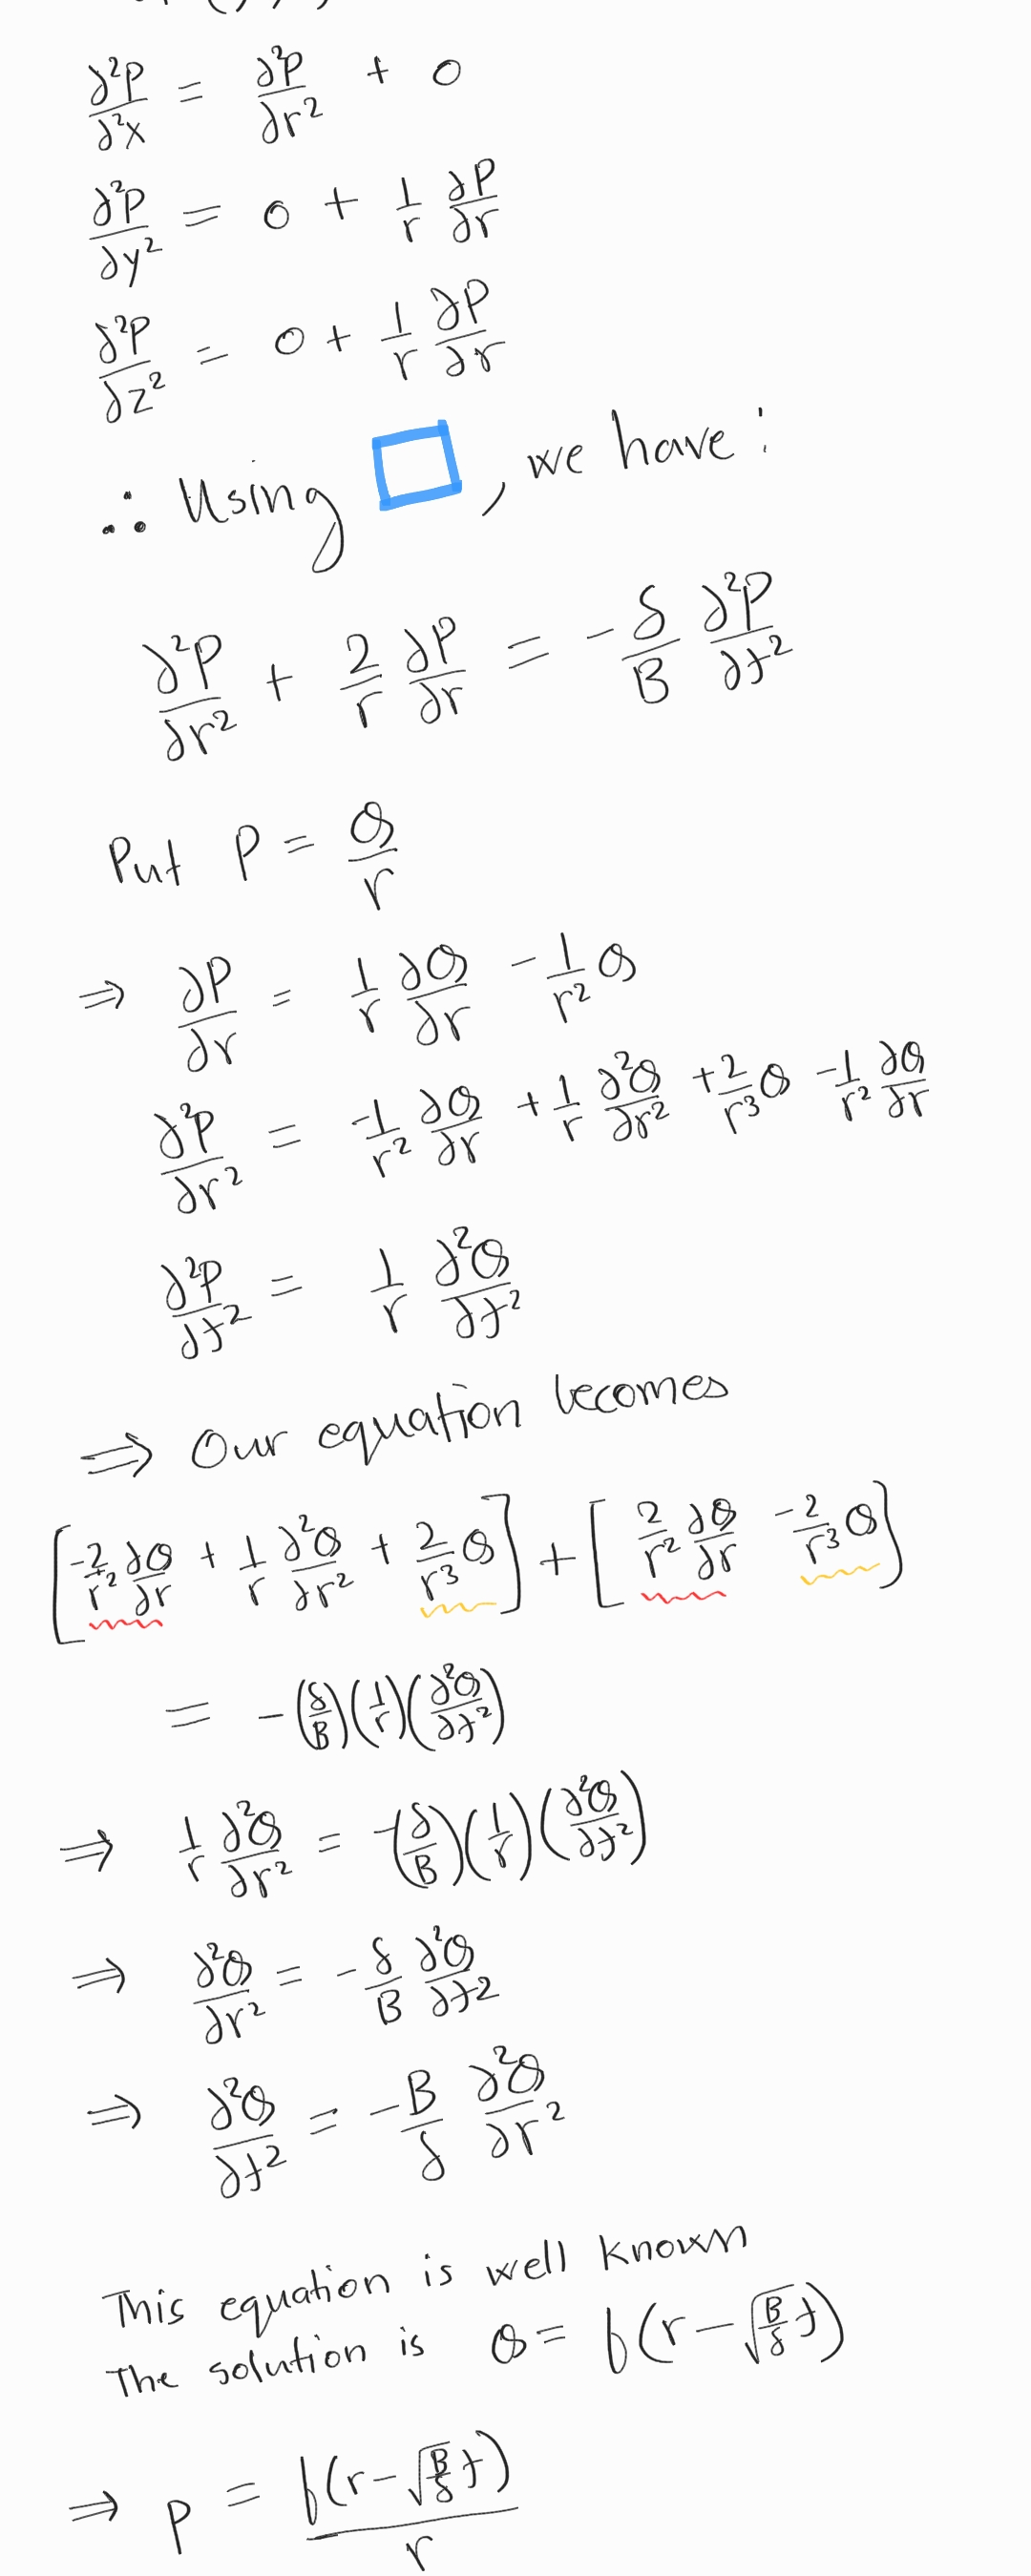 ∂²P/∂²x = ∂²P/∂r² + 0
∂²P/∂y² = 0 + 1/r ∂P/∂r
∂²P/∂z² = 0 + 1/r ∂P/∂r
∴ Using □, we have:
∂²P/∂r² + 2/r ∂P/∂r = -δ/B ∂²P/∂t²
Put P = Q/r
⇒ ∂P/∂r = 1/r ∂Q/∂r - 1/r² Q
∂²P/∂r² = -1/r² ∂Q/∂r + 1/r ∂²Q/∂r² + 2/r³ Q -1/r² ∂Q/∂r
∂²P/∂t² = 1/r ∂²Q/∂t²
⇒ Our equation becomes
[-2/r² ∂Q/∂r + 1/r ∂²Q/∂r² + 2/r³ Q] + [2/r² ∂Q/∂r -2/r³ Q]
= -(δ/B)(1/r)(∂²Q/∂t²)
⇒ 1/r ∂²Q/∂r² = -(δ/B)(1/r)(∂²Q/∂t²)
⇒ ∂²Q/∂r² = -δ/B ∂²Q/∂t²
⇒ ∂²Q/∂t² = -B/δ ∂²Q/∂r²
This equation is well known
The solution is Q = f(r-√(B/δ) t)
⇒ P = f(r-√(B/δ) t)/r